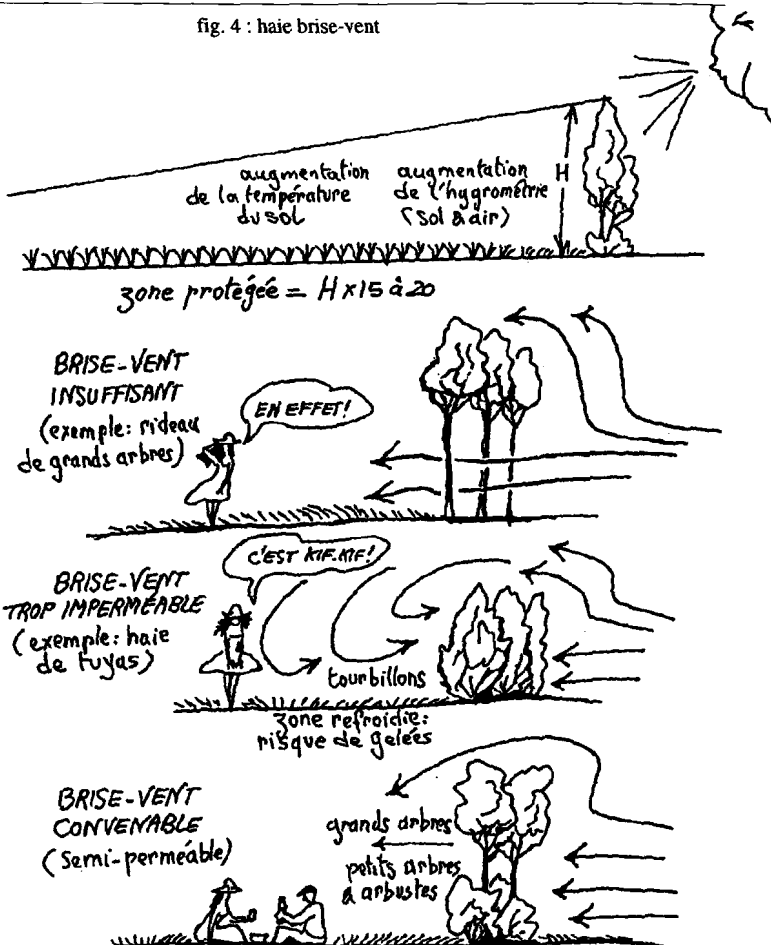 fig. 4 : haie brise-vent
augmentation
de la température
du sol
augmentation
de l'hygrométrie
(sol & air)
H
zone protégée = H x 15 à 20
BRISE-VENT
INSUFFISANT
(exemple: rideau
de grands arbres)
EN EFFET!
BRISE-VENT
TROP IMPERMÉABLE
(exemple: haie
de tuyas)
C'EST KIF-KIF!
tourbillons
zone refroidie:
risque de gelées
BRISE-VENT
CONVENABLE
(semi-perméable)
grands arbres
petits arbres
& arbustes